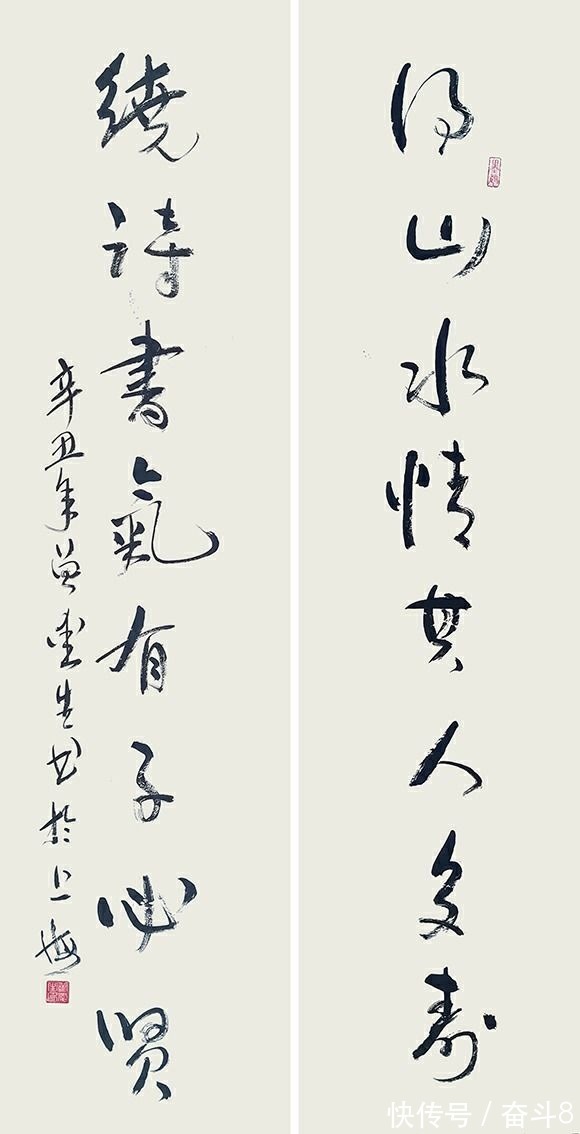 得山水情其人多寿
繞詩書氣有子必贤
辛丑年生书於上海
快传号 / 奋斗8